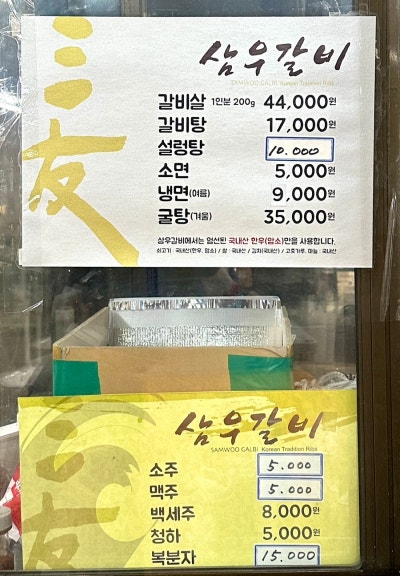 三友
삼우갈비
SAMWOO GALBI Korean Tradition Ribs
갈비살 1인분 200g 44,000원
갈비탕 17,000원
설렁탕 10.000
소면 5,000원
냉면(여름) 9,000원
굴탕(겨울) 35,000원
삼우갈비에서는 엄선된 국내산 한우(암소)만을 사용합니다.
쇠고기 : 국내산(한우, 암소) / 쌀 : 국내산 / 김치(국내산) / 고춧가루, 마늘 : 국내산
三友
삼우갈비
SAMWOO GALBI Korean Tradition Ribs
소주 5.000
맥주 5.000
백세주 8,000원
청하 5,000원
복분자 15.000